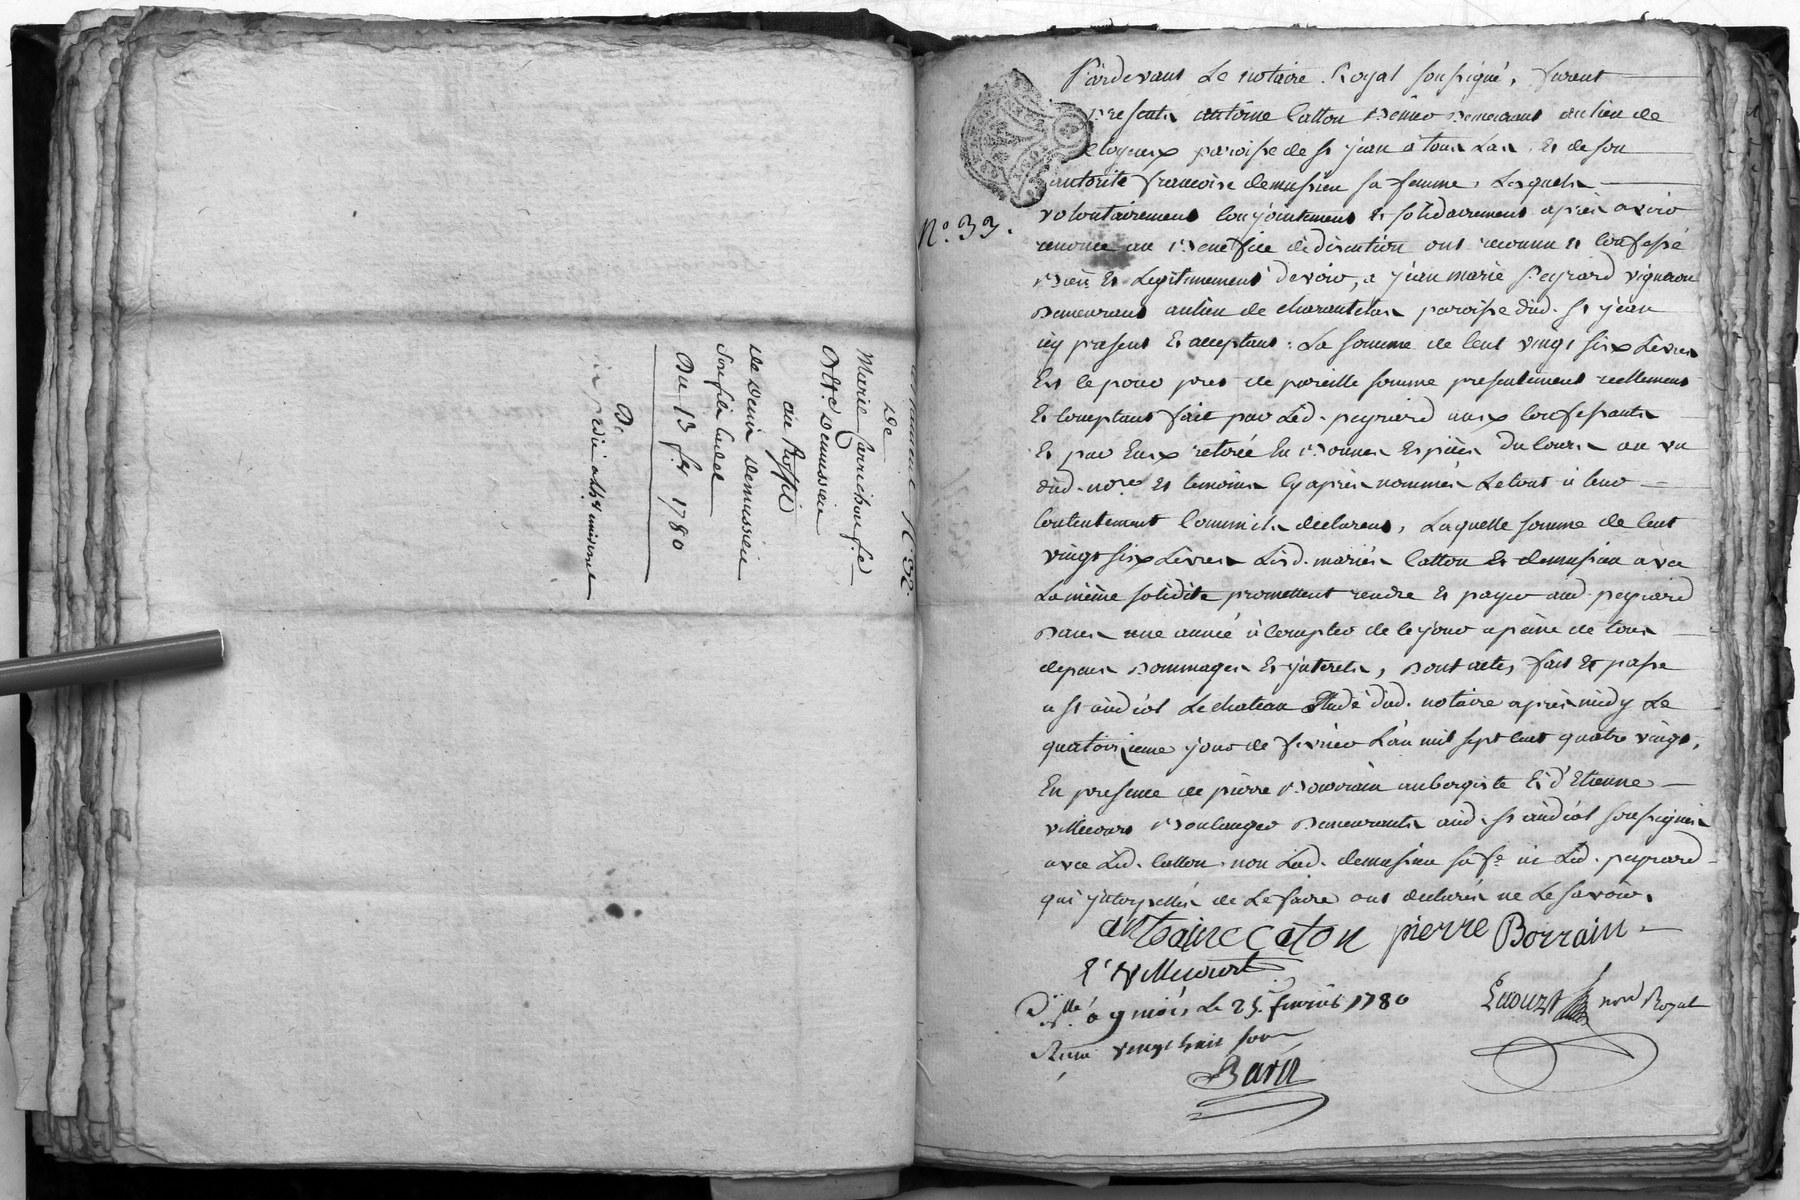 De
Marie
Demussieu
au Profit
De Denis Demussieu
Son fils Cadet
Du 13 fer 1780
N°. 33.
Pardevant Le notaire Royal soussigné, furent
presents antoine Catton demeurant au lieu de
paroisse de st jean à toulas Et de son
autorité francoise demussieu sa femme, Lesquels
volontairement Conjointement Et solidairement apres avoir
renoncé au Benefice dediscution ont reconnu Et Confessé
Bien Et Legitimement devoir, a jean marie peyrard vigneron
Demeurant au lieu de paroisse dud. st jean
icy present Et acceptant: La somme de Cent vingt six Livres
Et ce pour pret de pareille somme presentement reellement
Et Comptant fait par Led. peyrard aux Confessants
Et par Eux retirée En Bonnes Espèces du Cours au vu
dud. nore Et temoins Cy après nommés Le tout à leur
Contentement Comme ils declarent, Laquelle somme de Cent
vingt six Livres Lesd. mariés Catton Et demusieu avec
La même solidité promettent rendre Et payer aud. peyrard
Dans une année à Compter de Ce jour apeine de tous
depens Dommages Et jnterets, Dont acte, fait Et passé
a st andéol Le chateau Etude dud. notaire après midy Le
quatorzieme jour de fevrier L'an mil sept Cent quatre vingt,
En presence de pierre Borrain aubergiste Et d'Etienne
villecourt Boulanger Demeurants aud. st andéol soussignés
avec Led. Catton non Lad. demusieu sa fe ni Led. peyrard
qui jnterpellés de Le faire ont declarés ne Le savoir.
antoine Caton pierre Borrain
E. villecourt
nore Royal
à Le 25 fevrier 1780
Reçu vingt huit sous